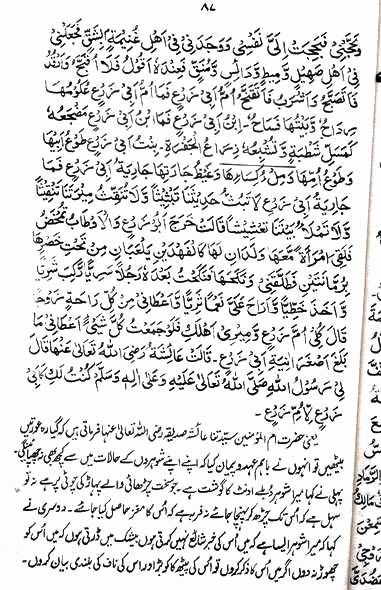 ٨٧
وَبَجَّحَنِيْ فَبَجِحَتْ اِلَيَّ نَفْسِيْ وَوَجَدَنِيْ فِيْ اَهْلِ غُنَيْمَةٍ بِشِقٍّ فَجَعَلَنِيْ
فِيْ اَهْلِ صَهِيْلٍ وَّاَطِيْطٍ وَّدَائِسٍ وَّمُنَقٍّ فَعِنْدَهٗ اَقُوْلُ فَلَا اُقَبَّحُ وَاَرْقُدُ
فَاَتَصَبَّحُ وَاَشْرَبُ فَاَتَقَمَّحُ اُمُّ اَبِيْ زَرْعٍ فَمَا اُمُّ اَبِيْ زَرْعٍ عُكُوْمُهَا
رِدَاحٌ وَّبَيْتُهَا فَسَاحٌ۔ اِبْنُ اَبِيْ زَرْعٍ فَمَا ابْنُ اَبِيْ زَرْعٍ مَضْجَعُهٗ
كَمَسَلِّ شَطْبَةٍ وَّتُشْبِعُهٗ ذِرَاعُ الْجَفْرَةِ۔ بِنْتُ اَبِيْ زَرْعٍ طَوْعُ اَبِيْهَا
وَطَوْعُ اُمِّهَا وَمِلْءُ كِسَاءِهَا وَغَيْظُ جَارَتِهَا جَارِيَةُ اَبِيْ زَرْعٍ فَمَا
جَارِيَةُ اَبِيْ زَرْعٍ لَا تَبُثُّ حَدِيْثَنَا تَبْثِيْثًا وَّلَا تُنَقِّثُ مِيْرَتَنَا تَنْقِيْثًا
وَّلَا تَمْلَاُ بَيْتَنَا تَعْشِيْشًا قَالَتْ خَرَجَ اَبُوْ زَرْعٍ وَالْاَوْطَابُ تُمْخَضُ
فَلَقِيَ امْرَاَةً مَّعَهَا وَلَدَانِ لَهَا كَالْفَهْدَيْنِ يَلْعَبَانِ مِنْ تَحْتِ خَصْرِهَا
بِرُمَّانَتَيْنِ فَطَلَّقَنِيْ وَنَكَحَهَا فَنَكَحْتُ بَعْدَهٗ رَجُلًا سَرِيًّا رَكِبَ شَرِيًّا
وَّاَخَذَ خَطِّيًّا وَّاَرَاحَ عَلَيَّ نَعَمًا ثَرِيًّا وَّاَعْطَانِيْ مِنْ كُلِّ رَائِحَةٍ زَوْجًا
قَالَ كُلِيْ اُمَّ زَرْعٍ وَّمِيْرِيْ اَهْلَكِ فَلَوْ جَمَعْتُ كُلَّ شَيْءٍ اَعْطَانِيْ مَا
بَلَغَ اَصْغَرَ اٰنِيَةِ اَبِيْ زَرْعٍ۔ قَالَتْ عَائِشَةُ رَضِيَ اللّٰهُ تَعَالٰى عَنْهَا قَالَ
لِيْ رَسُوْلُ اللّٰهِ صَلَّى اللّٰهُ تَعَالٰى عَلَيْهِ وَعَلٰى اٰلِهٖ وَسَلَّمَ كُنْتُ لَكِ كَاَبِيْ
زَرْعٍ لِاُمِّ زَرْعٍ۔
یعنی حضرت ام المؤمنین سیدتنا عائشہ صدیقہ رضی اللہ تعالیٰ عنہا فرماتی ہیں کہ گیارہ عورتیں
بیٹھیں تو انہوں نے باہم عہد و پیمان کیا کہ اپنے اپنے شوہروں کے حالات میں سے کچھ بھی نہ چھپائیں گی
پہلی نے کہا میرا شوہر دبلے اونٹ کا گوشت ہے۔ جو سخت چڑھائی والے پہاڑ کی چوٹی پر ہے نہ تو
سہل ہے کہ اُس تک چڑھ کر پہنچا جائے نہ فربہ ہے کہ اُس کا مغز حاصل کیا جائے۔ دوسری نے
کہا کہ میرا شوہر ایسا ہے کہ میں اُس کی خبر شائع نہیں کرتی ہوں بیشک میں ڈرتی ہوں کہ میں اُس کو
چھوڑ نہ دوں اگر میں اُس کا ذکر کروں تو اُس کی پیٹھ کا کوبڑ اور اس کی ناف کی بلندی بیان کروں۔